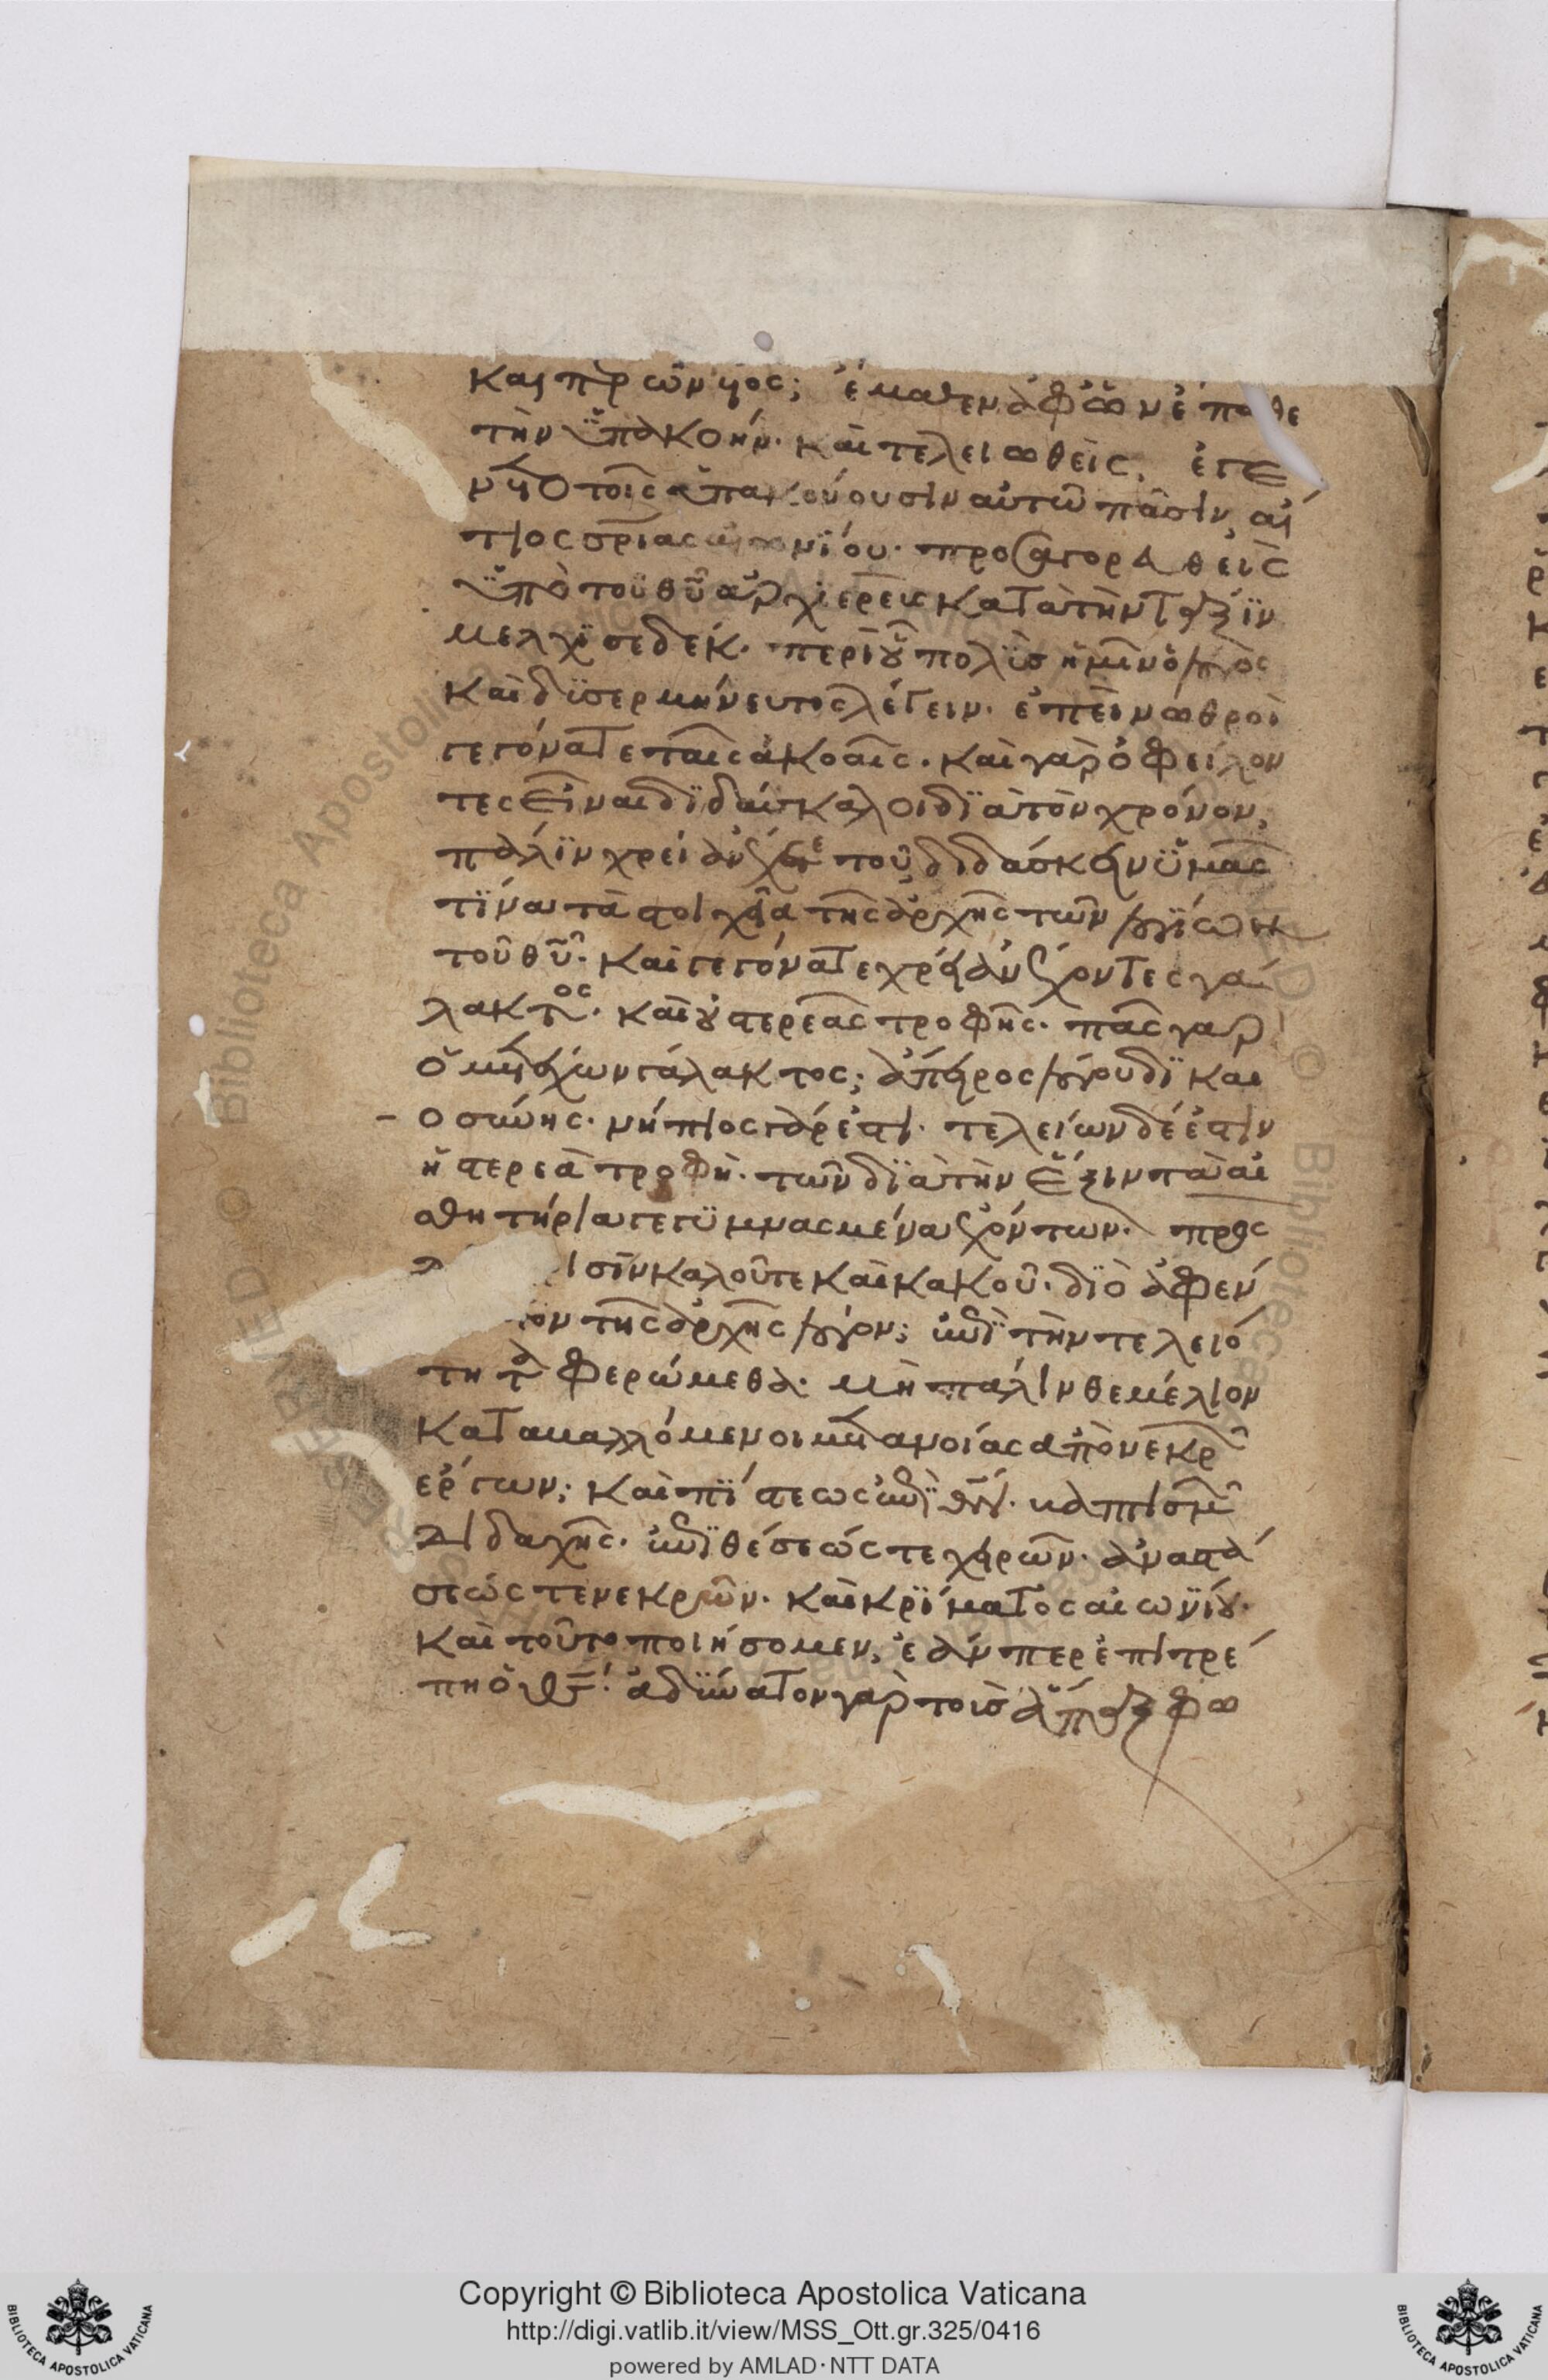 καὶ περ ὢν υἱος; ἔμαθεν ἀφ ὧν ἔπαθε
τὴν ὑπακοήν. καὶ τελειωθεὶς, ἐγέ
νετο τοῖς ὑπακούουσιν αὐτῶ πᾶσιν, αἴ
τιος σρίας αἰωνίου. προσαγορευθεὶς
ὑπὸ τοῦ θῦ ἀρχιερεὺς κατὰ τὴν τάξϊν
μελχϊσεδέκ. περὶ οὗ πολϊς ἡμῖν ὁ λόγος
καὶ δϊσερμήνευτος λέγειν. ἐπεὶ νωθροὶ
γεγόνατε ταῖς ἀκοαῖς. καὶ γὰρ ὀφείλον
τες εἶναι δϊδάσκαλοι δϊὰ τὸν χρόνον,
πάλϊν χρείαν ἔχετε τοῦ διδάσκειν ὑμᾶς
τϊνα τὰ στοιχεῖα τῆς ἀρχῆς τῶν λογίων
τοῦ θῦ. καὶ γεγόνατε χρείαν ἔχοντες γά
λακτος. καὶ οὐ στερεᾶς τροφῆς. πᾶς γὰρ
ὁ μετέχων γάλακτος; ἄπειρος λόγου δϊκαι
οσύνης. νήπιος γάρ ἐστι. τελείων δέ ἐστιν
ἡ στερεὰ τροφή. τῶν δϊὰ τὴν ἕξιν τὰ αἰ
σθητήρια γεγϋμνασμένα ἐχόντων. προς
ισϊν καλοῦ τε καὶ κακοῦ. δϊὸ ἀφέν
τον τῆς ἀρχῆς λόγον; ἐπὶ τὴν τελειό
τητα φερώμεθα. μὴ πάλιν θεμέλιον
καταβαλλόμενοι μετανοίας ἀπὸ νεκρῶν
ἔργων; καὶ πίστεως ἐπὶ θν. βαπτισμῶν
διδαχῆς. ἐπϊθέσεώς τε χειρῶν. ἀναστά
σεώς τε νεκρῶν. καὶ κρϊματος αἰωνϊου.
καὶ τοῦτο ποιήσομεν, ἐάνπερ ἐπιτρέ
πη ὁ θς. ἀδϋνατον γὰρ τοὺς ἅπαξ φω
Copyright © Biblioteca Apostolica Vaticana
http://digi.vatlib.it/view/MSS_Ott.gr.325/0416
powered by AMLAD·NTT DATA